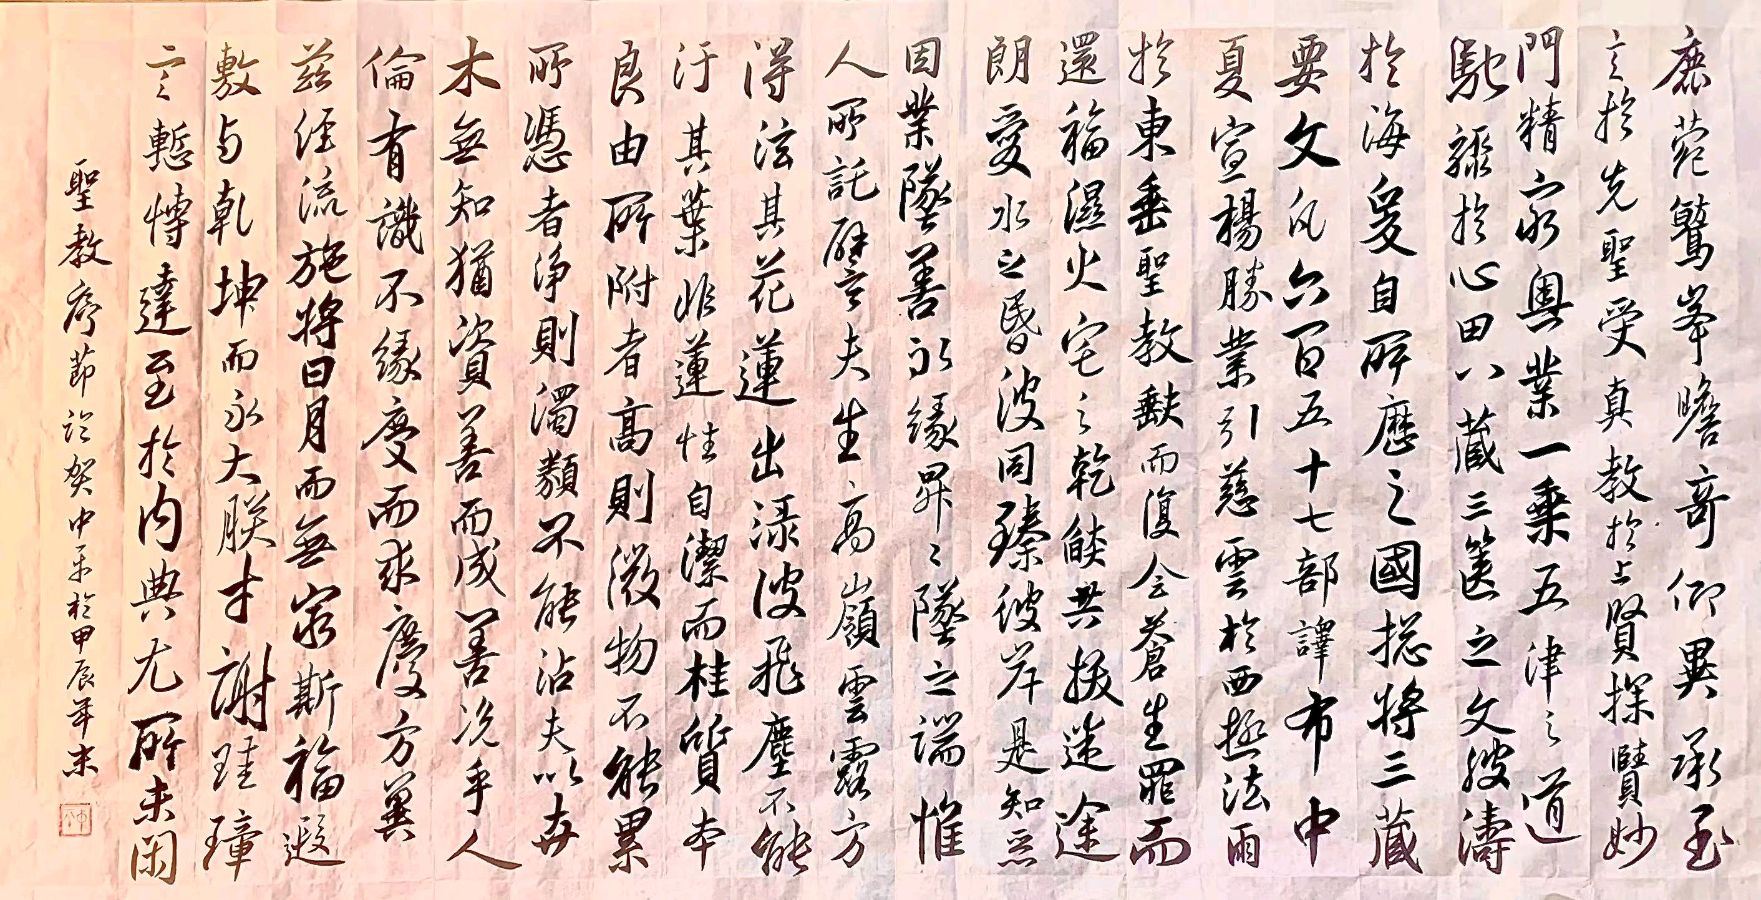 鹿菀鷲峯瞻奇仰異承至
言於先聖受真教於上賢探賾妙
門精窮奧業一乘五津之道
馳驟於心田八藏三篋之文波濤
於海爰自所歷之國揔將三藏
要文凡六百五十七部譯布中
夏宣楊勝業引慈雲於西極法雨
於東垂聖教缺而復全蒼生罪而
還福濕火宅之乾燄共拔迷途
朗愛水之昏波同臻彼岸是知惡
因業墜善以緣昇〻墜之端惟
人所託譬夫生高嶺雲露方
得泫其花蓮出淥波飛塵不能
汙其葉非蓮性自潔而桂質本
良由所附者高則微物不能累
所憑者淨則濁類不能沾夫以卉
木無知猶資善而成善況乎人
倫有識不緣慶而求慶方冀
茲經流施將日月而無窮斯福遐
敷與乾坤而永大朕才謝珪璋
言慙博達至於內典尤所未閑
聖教序節臨賀中平於甲辰年末